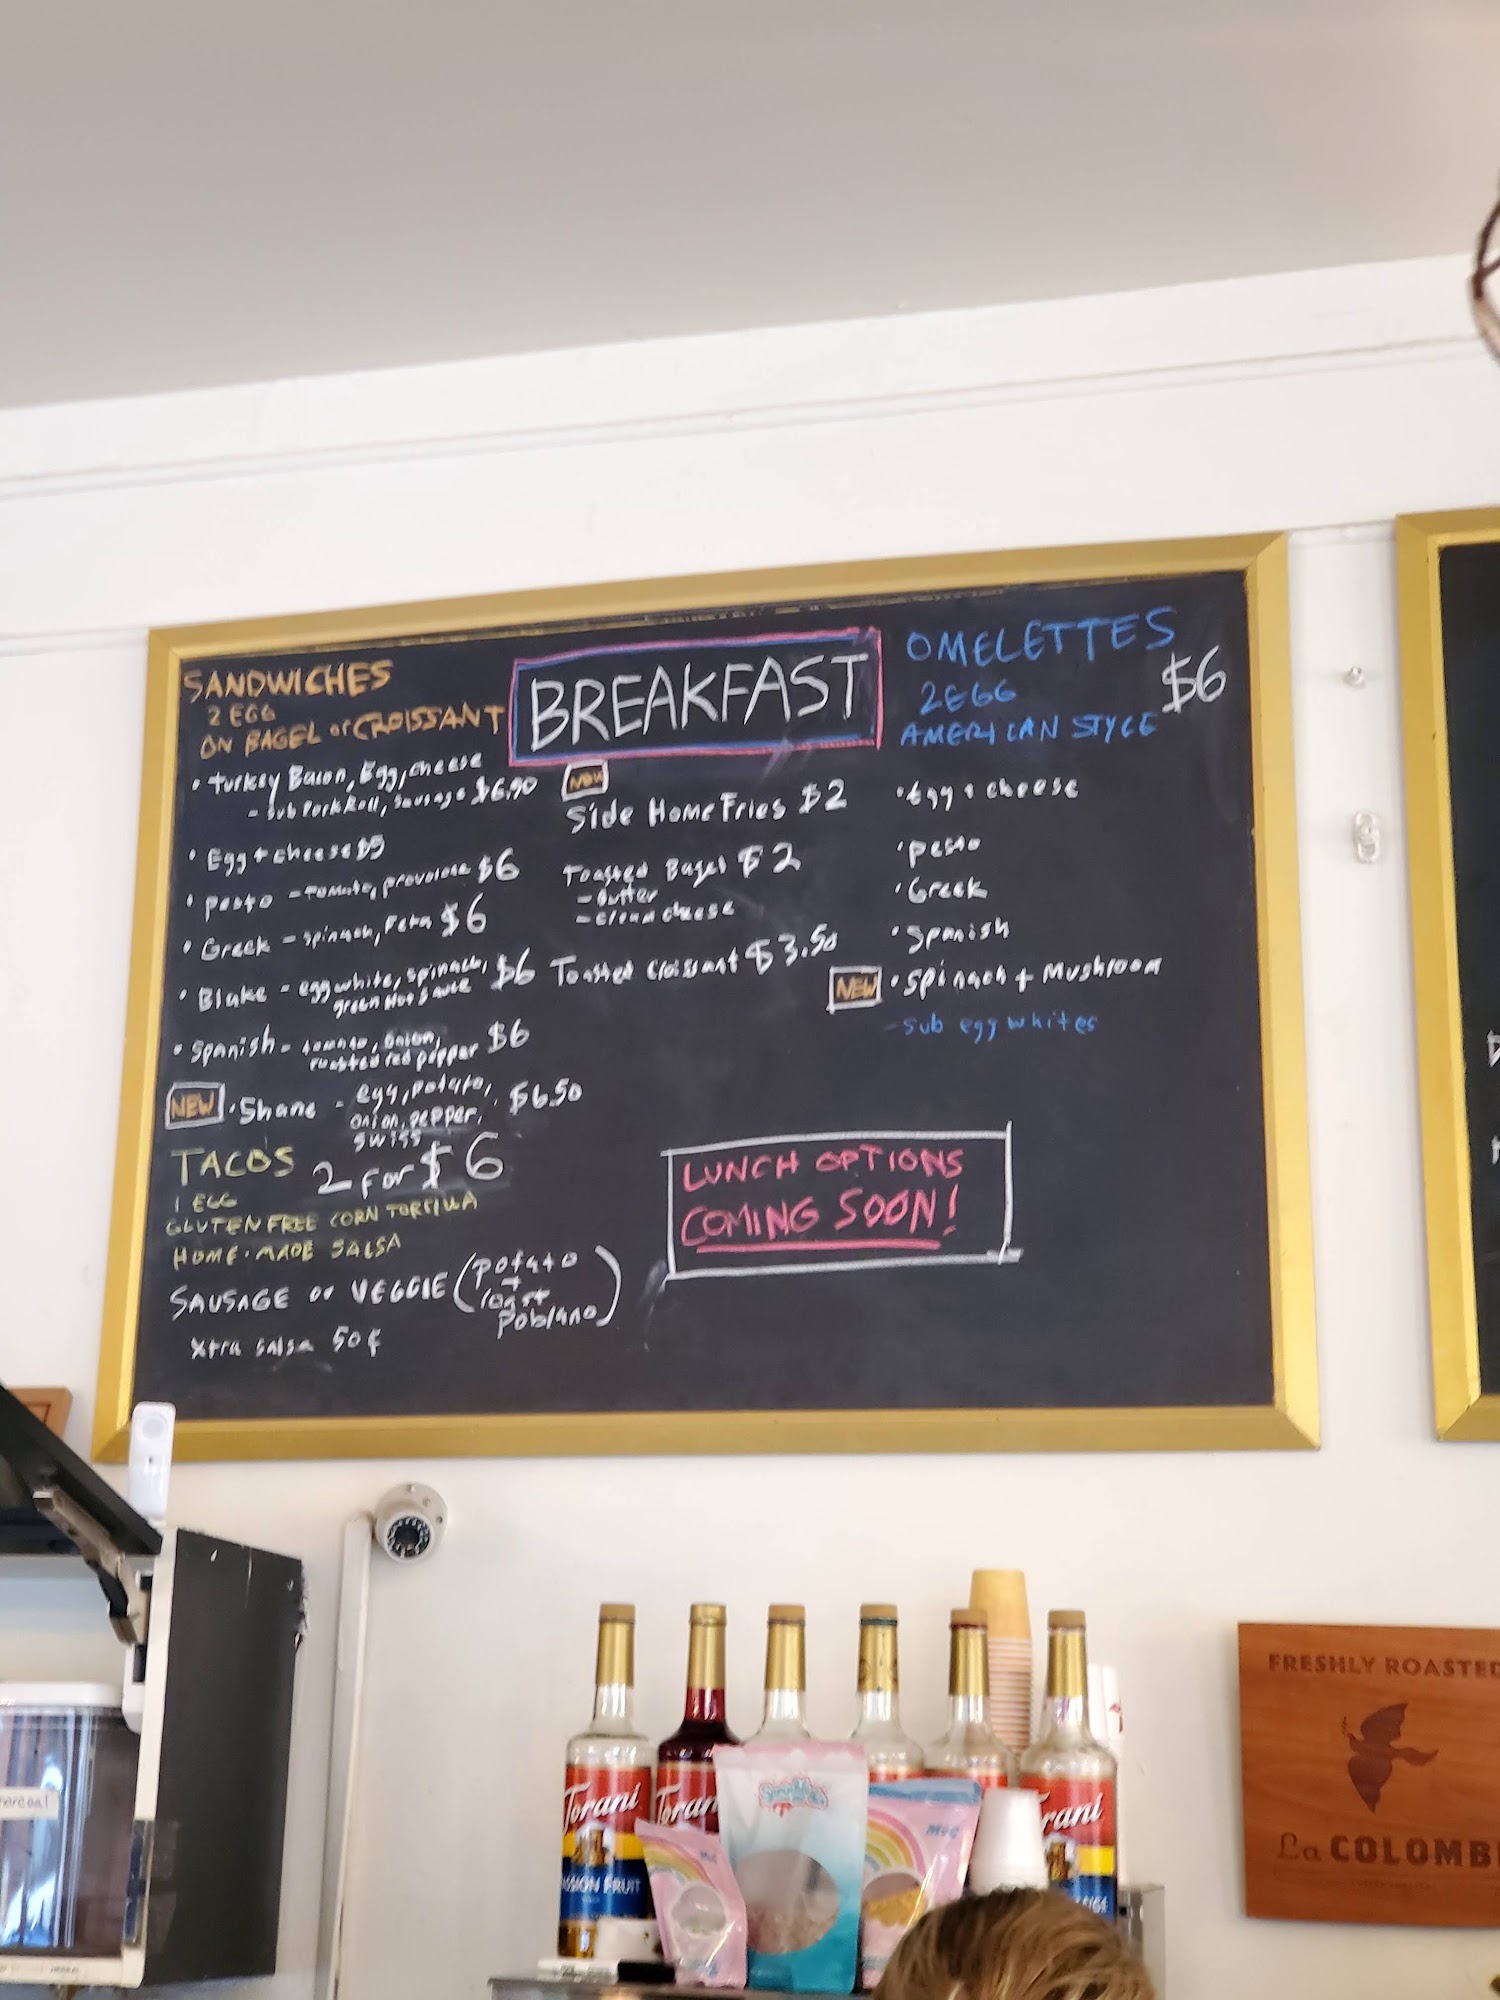 BREAKFAST
SANDWICHES
2 EGG
ON BAGEL or CROISSANT
• Turkey Bacon, Egg, cheese
- sub Pork Roll, Sausage $6.90
• Egg + cheese $5
• Pesto - tomato, provolone $6
• Greek - spinach, Feta $6
• Blake - egg white, spinach, $6
green Hot Sauce
• Spanish - tomato, onion, $6
roasted red pepper
NEW • Shane - egg, potato, $6.50
onion, pepper,
swiss
TACOS 2 for $6
1 EGG
GLUTEN FREE CORN TORTILLA
HOME-MADE SALSA
SAUSAGE or VEGGIE (potato
+
roast
poblano)
Xtra salsa 50¢
NEW
Side Home Fries $2
Toasted Bagel $2
- butter
- cream cheese
Toasted Croissant $3.50
OMELETTES
$6
2 EGG
AMERICAN STYLE
• Egg + cheese
• pesto
• Greek
• Spanish
NEW • Spinach + Mushroom
- sub egg whites
LUNCH OPTIONS
COMING SOON!
Torani
Torani
PASSION FRUIT
FRESHLY ROASTED
La COLOMB